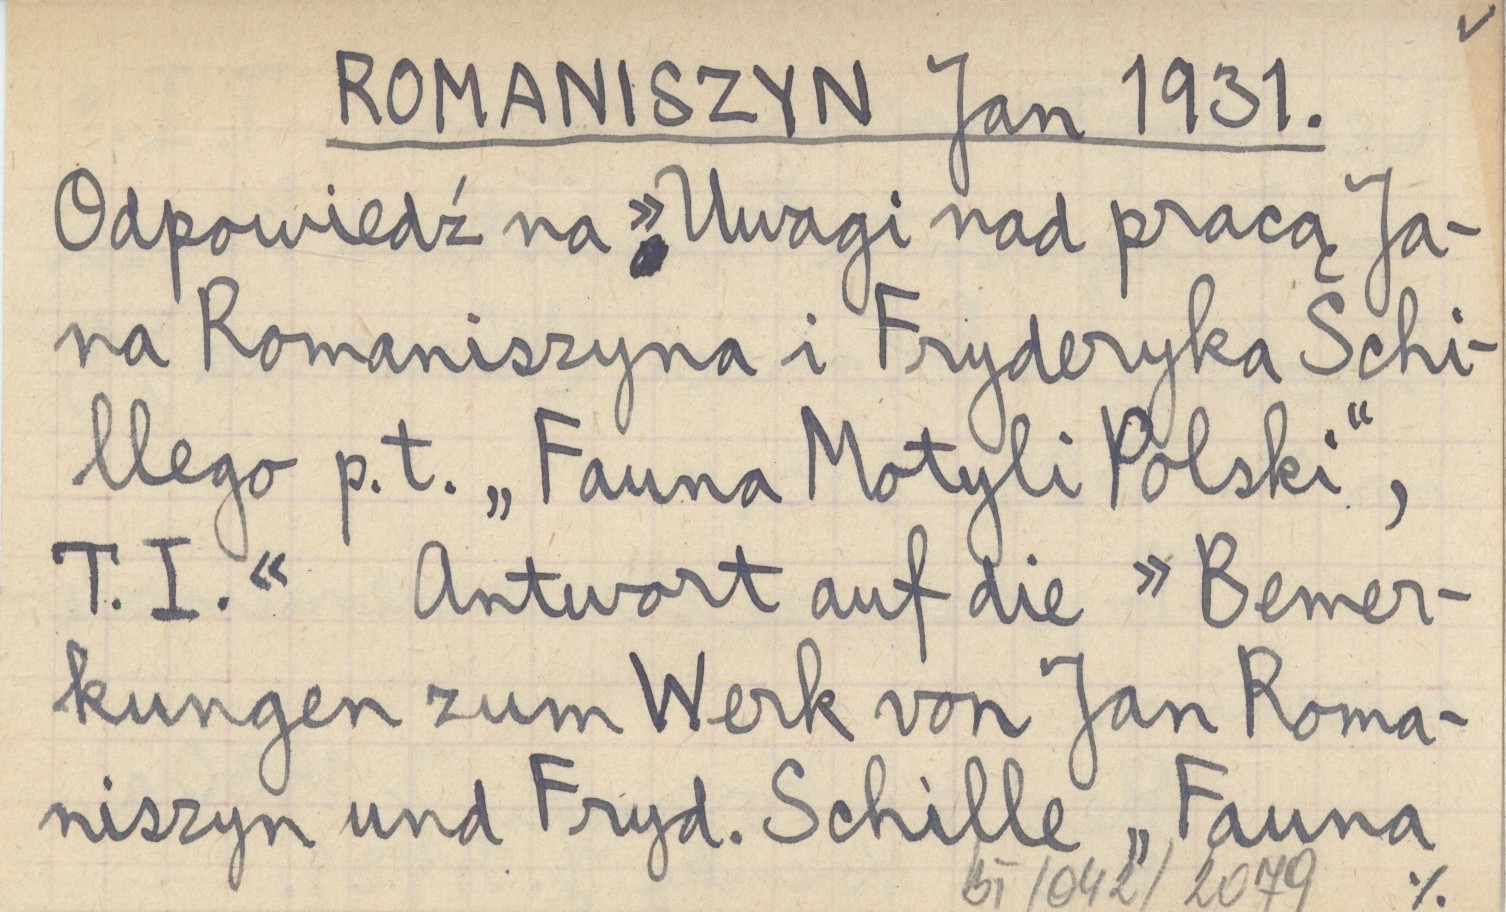 ROMANISZYN Jan 1931.
Odpowiedź na »Uwagi nad pracą Ja-
na Romaniszyna i Fryderyka Schi-
llego p.t. „Fauna Motyli Polski“,
T. I.“ Antwort auf die » Bemer-
kungen zum Werk von Jan Roma-
niszyn und Fryd. Schille „Fauna
/042/ 2079 ·/.